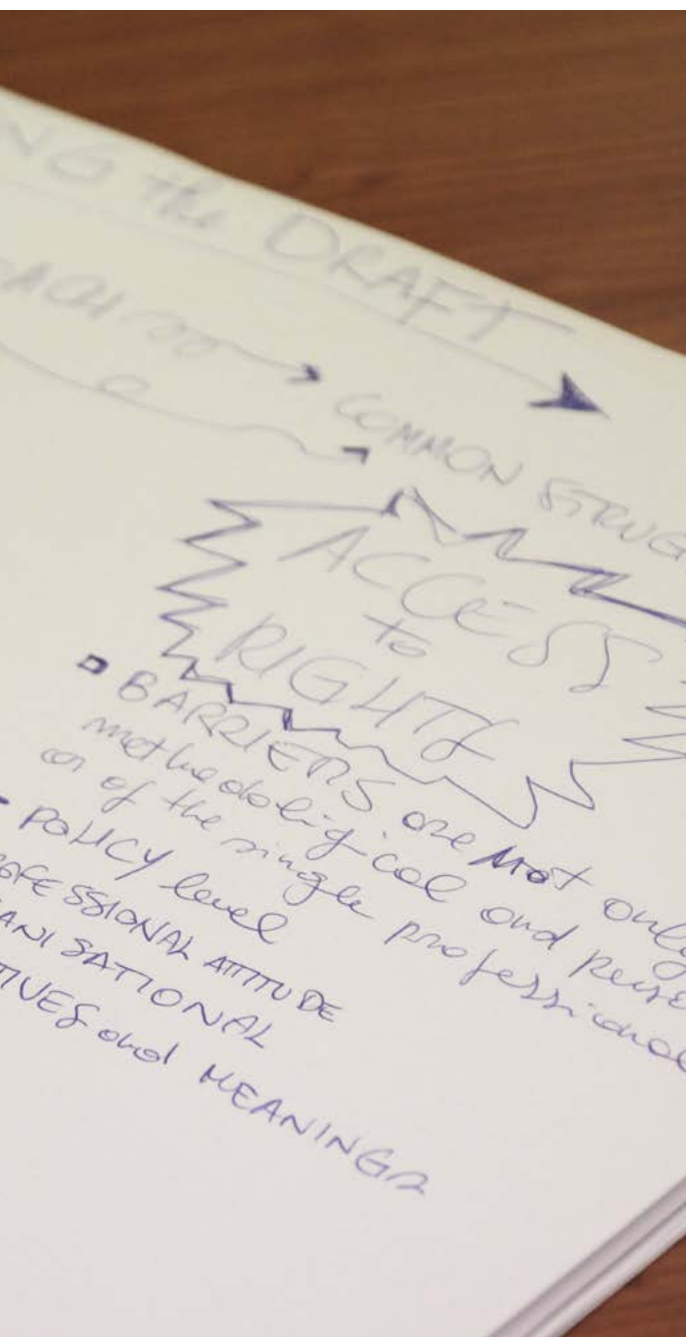 NG the DRAFT
COMMON STRUG
ACCESS
to
RIGHTS
BARRIERS are not only
methodological and perso
or of the single professional
- POLICY level
OFESSIONAL ATTITUDE
ANISATIONAL
TIVES and MEANINGS